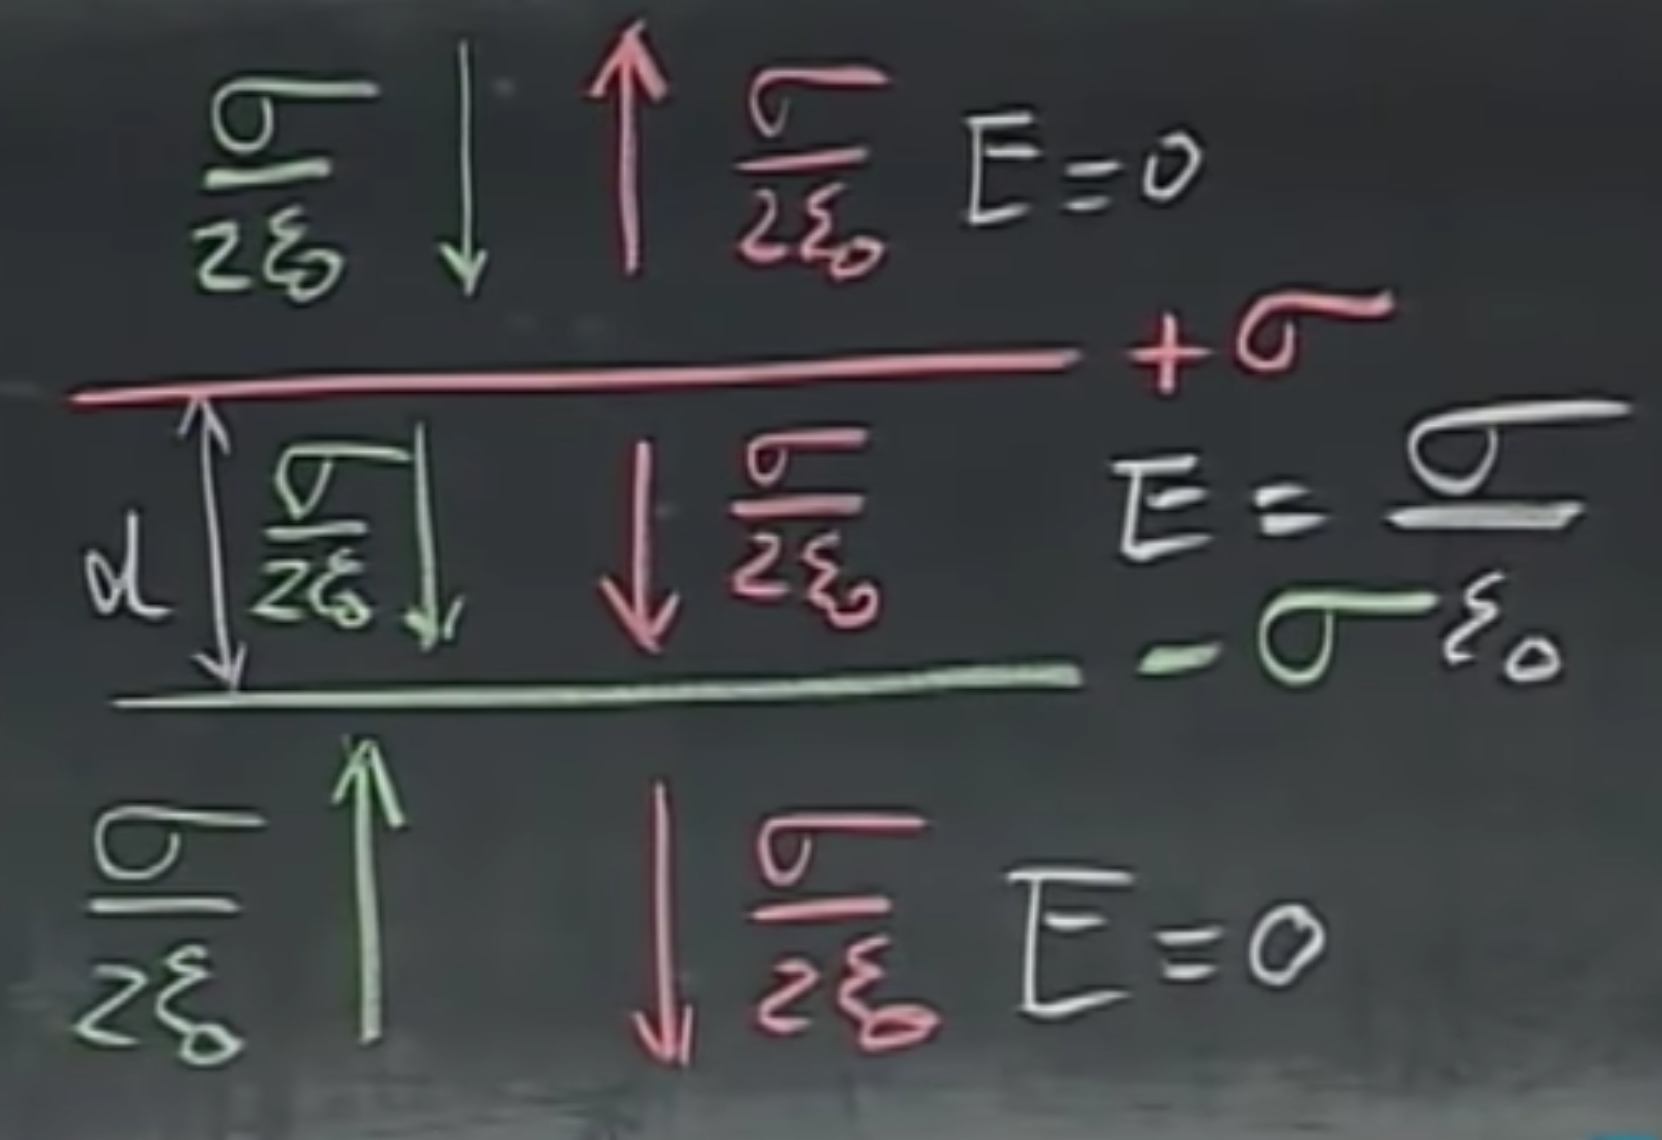 σ/2ε₀ σ/2ε₀ E=0
+σ
d σ/2ε₀ σ/2ε₀ E=σ/ε₀
-σ
σ/2ε₀ σ/2ε₀ E=0